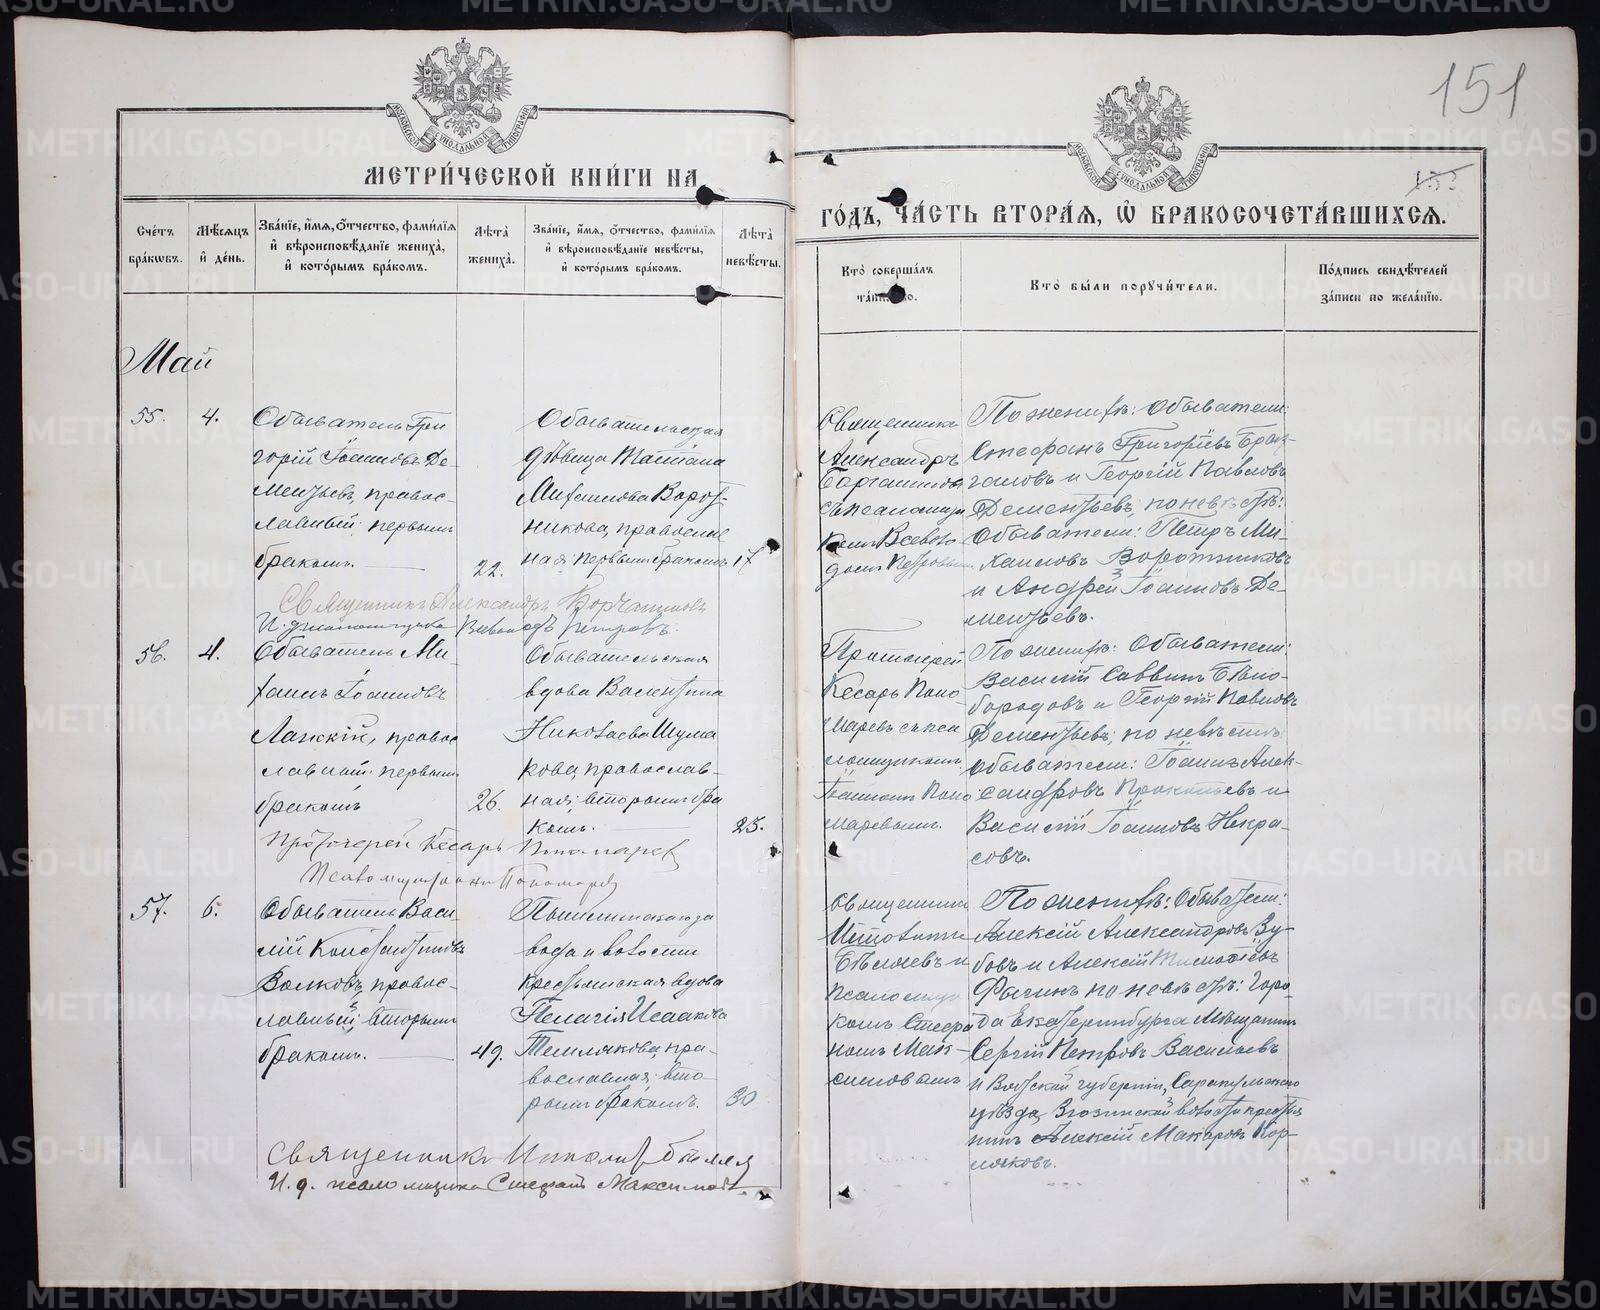 151
МЕТРИ́ЧЕСКОЙ КНИ́ГИ НА
ГО́ДЪ, ЧА́СТЬ ВТОРА́Я, Ѿ БРАКОСОЧЕТА́ВШИХСЯ.
Сче́тъ бра́кѡвъ.
Мѣ́сяцъ и҆ де́нь.
Зва́нїе, и҆́мя, ѻ҆́тчество, фами́лїя и҆ вѣроисповѣ́данїе жениха̀, и҆ кото́рымъ бра́комъ.
Лѣ́та жениха̀.
Зва́нїе, и҆́мя, ѻ҆́тчество, фами́лїя и҆ вѣроисповѣ́данїе невѣ́сты, и҆ кото́рымъ бра́комъ.
Лѣ́та невѣ́сты.
Кто̀ соверша́лъ
Кто̀ бы́ли поручи́тели.
По́дпись свидѣ́телей за́писи по жела́нїю.
Май
55.
4.
Обыватель Гри
горій Іоанновъ Де-
ментьевъ, правос-
лавный; первымъ
бракомъ.
22.
Обывательская
дѣвица Татіана
Михаилова Ворот-
никова, православ
ная; первымъ бракомъ
17
Священникъ
Александръ
съ псаломщи
комъ Всево
домъ Петровым
По женихѣ: Обыватели:
Стефанъ Григоріевъ
и Георгій Павловъ
Дементьевъ; по невѣстѣ:
Обыватели: Петръ Ми-
хаиловъ Воротниковъ
и Андрей Іоанновъ Де-
ментьевъ.
Священникъ Александръ
И. д. псаломщика Всеволодъ Петровъ.
56.
4.
Обыватель Ми-
хаилъ Іоанновъ
Ляжкій, правос
лавный; первымъ
бракомъ
26.
Обывательская
вдова Валентина
Николаева Шума
кова, православ-
ная; вторымъ бра
комъ.
23.
Протоіерей
Кесарь Поно
маревъ съ пса
ломщикомъ
Іоанномъ Поно
маревымъ.
По женихѣ: Обыватели:
Василій Саввинъ Бѣло-
бородовъ и Георгій Павловъ
Дементьевъ; по невѣстѣ
Обыватели: Іоаннъ Алек-
сандровъ Прокопьевъ и
Василій Іоанновъ Некра-
совъ.
Протоіерей Кесарь Пономарев
Псаломщик Пономарев
57.
6.
Обыватель Васи-
лій Константиновъ
Волковъ, правос-
лавный; вторымъ
бракомъ.
49.
Пышминскаго за
вода и волости
крестьянская вдова
Пелагія Исаакова
Темлякова, пра-
вославная; вто-
рымъ бракомъ.
30
Священникъ
Ипполитъ
Бѣляевъ и
псаломщи
комъ Стефа
номъ Мак-
симовымъ
По женихѣ: Обыватели:
Алексій Александровъ Зу-
бовъ и Алексій Тимофеевъ
по невѣстѣ: Горо-
да Екатеринбурга мѣщанинъ
Сергій Петровъ Васильевъ
и Вятской губерніи, Сарапульскаго
уѣзда, волости крестья
нинъ Алексій Макаровъ Кор-
ляковъ.
Священникъ Ипполит Беляев
И. д. псаломщика Стефанъ Максимовъ
METRIKI.GASO-URAL.RU